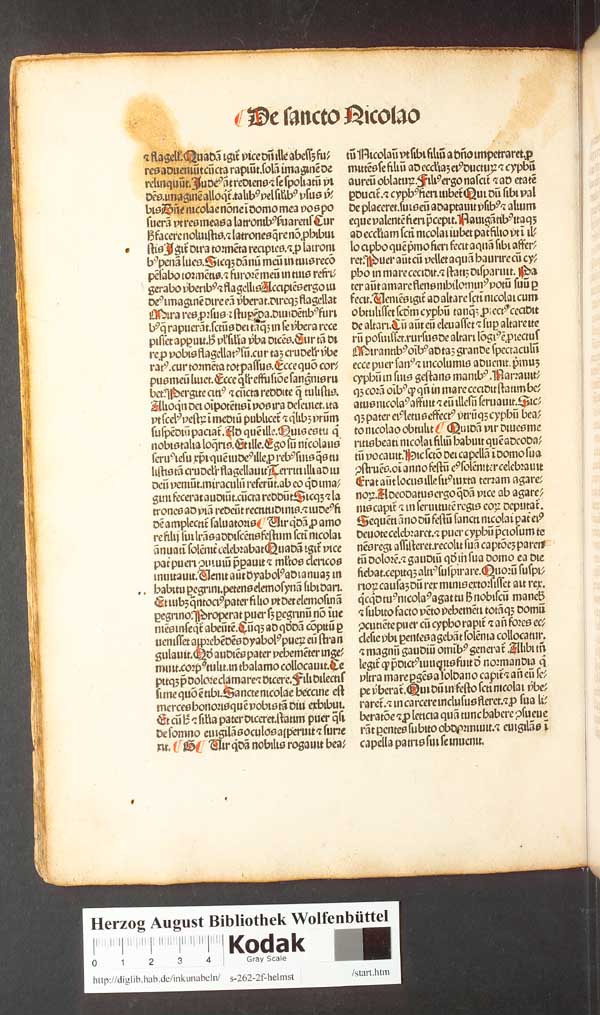 De sancto Nicolao
⁊ flagell. Quadā igit̄ vice dū ille abess; fu-
res adueniūt cūcta rapiūt. solā imaginē de
relinquūt. Iude᷒ āt rediens ⁊ se spoliatū vi
dēs. imaginē alloqt̄. talib᷒ vel silib᷒ ꝟbis usus
Dn̄e nicolae nōne ī domo mea vos po
suerā vt res meas a latronib᷒ ẜuaretis Cur
facere noluistis. ⁊ latrones qre nō phibui
stis Igit̄ dira tormēta recipietis. ⁊ p latroni
b᷒ penā lues. Sicqz dānū meū in tuis reco
pēsabo tormētis. ⁊ furorē meū in tuis refri-
gerabo ꝟberib᷒ ⁊ flagellis Accipiēs ergo iu
de᷒ imaginē dire eā ꝟberat. direqz flagellat
Mira res prsus ⁊ stupēda. diuidētib᷒ furi
b᷒ q̄ rapuerāt. scūs dei
pisset apparuit.
re p vobis flagellat᷒ sū. cur tā crudelr̄ ꝟbe
rat᷒. cur tormēta tot passus. Ecce quō cor-
pus meū liuet. Ecce qlr̄ effusiōe sanguīs ru
bet. Pergite cit᷒ ⁊ cūcta reddite q̄ tulistis.
Alioqn dei oīpotētis ī vos ira deseuiet. ita
vt scel᷒ vestrū ī mediū publicet᷒ ⁊ qlibz vrūm
suspēdiū paciat᷒. Ad quē ille. Quis es tu q̄
nobis talia loqris. Et ille. Ego sū nicolaus
seru᷒ iesu xp̄i quē iude᷒ ille p reb᷒ suis qs tu
listis tā crudelr̄ flagellauit Territi illi ad iu
deū veniūt. miraculū referūt. ab eo qd ima-
gini fecerat audiūt. cūcta reddūt Sicqz ⁊ la
trones ad viā redeūt rectitudinis. ⁊ iude᷒ fi
dē amplectit̄ saluatoris Vir qdā p amo
re filij sui lr̄as addiscētis festum scti nicolai
annuatī solēnit̄ celebrabat Quadā igit̄ vice
pat̄ pueri ꝯuiuiū ppauit ⁊ mltos clericos
inuitauit. Venit aūt dyabol᷒ ad ianuaz in
habitu pegrini. petens elemosynā sibi dari.
pater filio vt det elemosinā
pegrino. Properat puer sz pegrinū nō iue
niēs inseqt̄ abeūtē. Cūqz ad qddā cōpitū p
uenisset apprehēdēs dyabol᷒ puez eū stran
gulauit. Qd audiēs pater vehemēter inge-
muit. corp᷒ tulit. in thalamo collocauit. Ce
pitqz p dolore clamare ⁊ dicere. Fili dilectis
sime quō ē tibi. Sancte nicolae heccine est
merces honoris quē vobis tā diu exhibui.
Et cū ⁊ silia pater diceret. statim puer qsi
de somno euigilās oculos aperuit ⁊ surre
xit. Vir qdā nobilis rogauit bea-
tū Nicolaū vt sibi filiū a dn̄o impetraret. p
mittēs se filiū ad eccliaz ei᷒ ducturū ⁊ cyphū
aureū oblaturū. Fili᷒ ergo nascit̄ ⁊ ad etatē
pducit̄. ⁊ cyph᷒ fieri iubet Qui dū sibi val
de placeret. suis eū adaptauit vsib᷒ ⁊ alium
eque valentē fieri pcepit. Nauigātib᷒ itaqz
ad eccliam scti nicolai iubet pat̄ filio vt i il-
lo cipho quē pmo fieri fecit aquā sibi affer-
ret. Puer aūt cū vellet aquā haurire cū cy-
pho in mare cecidit. ⁊ statiz disparuit. Pa
ter aūt amare flens nihilomin᷒ votū suū p
fecit. Ueniēs igit̄ ad altare scti nicolai cum
obtulisset scdm cyphū tanqz piect᷒ cecidit
de altari. Cū aūt eū eleuasset ⁊ sup altare ite
rū posuisset. rursus de altari lōgi᷒ ē piectus
Mirantib᷒ oīb᷒ ad taz grande spectaculū
ecce puer san᷒ ⁊ incolumis aduenit. pimuz
cyphū in suis gestans manib᷒. Narrauit-
qz corā oīb᷒ qr qn̄ in mare cecidit statim be-
atus nicola᷒ affuit ⁊ eū illesū seruauit. Sic-
qz pater ei᷒ letus effect᷒ vtrūqz cyphū bea-
to nicolao obtulit Quidā vir diues me
ritis beati nicolai filiū habuit quē adeoda-
tū vocauit. Hic sctō dei capellā ī domo sua
ꝯstruēs. oī anno festū ei᷒ solēnit̄ celebrauit
Erat aūt locus ille sit᷒ iuxta terram agare-
noꝝ. Adeodatus ergo qdā vice ab agare-
nis capit̄ ⁊ in seruitutē regis eoꝝ deputat̄.
Sequēti āno dū festū sancti nicolai pat̄ ei᷒
deuote celebraret. ⁊ puer cyphū pciosum te
nēs regi assisteret. recolit sua captōez parentū
dolorē. ⁊ gaudiū qd in sua domo ea die
fiebat. cepitqz alti᷒ suspirare. Quoꝝ suspi-
rioꝝ causaz dū rex minis extorsisset ait rex.
qcqd tu᷒ nicola᷒ agat tu nobiscū maneb᷒
⁊ subito facto vēto vehemēti totāqz domū
ꝯcutiēte puer cū cypho rapit̄ ⁊ an̄ fores ec-
clesie vbi pentes agebāt solēnia collocatur.
⁊ magnū gaudiū omib᷒ generat̄ Alibi tn̄
legit̄ qr pdict᷒ iuuenis fuit d normandia q̄
vltra mare pgēs a soldano capit̄ ⁊ an̄ eū se-
pe ꝟberat᷒. Qui dū in festo scti nicolai ꝟbe-
raret᷒ ⁊ in carcere inclusus fleret. ⁊ p sua li-
beratōe ⁊ p leticia quā tunc habere ꝯsueue
rāt pentes subito obdormiuit. ⁊ euigilās ī
capella patris sui se inuenit.
Herzog August Bibliothek Wolfenbüttel
0 1 2 3 4
Kodak
Gray Scale
http://diglib.hab.de/inkunabeln/ s-262-2f-helmst /start.htm